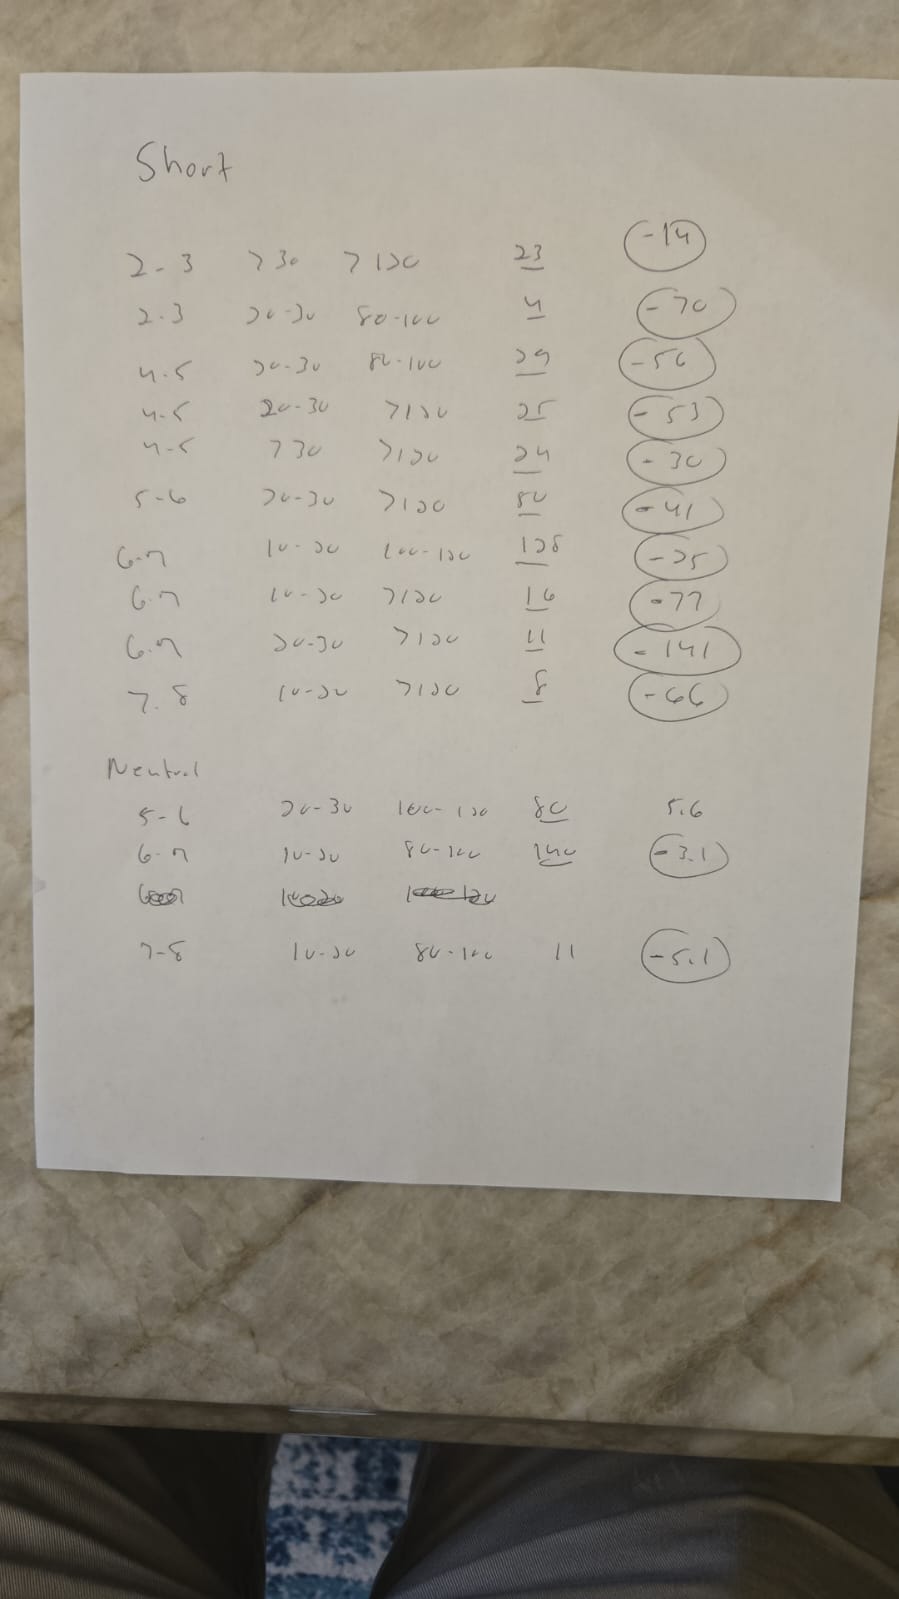 Short
2-3 >30 >120 23 -14
2-3 20-30 80-100 4 -70
4-5 20-30 80-100 29 -56
4-5 20-30 >120 25 -53
4-5 >30 >120 24 -30
5-6 20-30 >120 80 -41
6-7 10-20 100-120 128 -25
6-7 10-20 >120 16 -77
6-7 20-30 >120 11 -141
7-8 10-20 >120 8 -66
Neutral
5-6 20-30 100-120 80 5.6
6-7 10-20 80-100 140 -3.1
7-8 10-20 80-100 11 -5.1